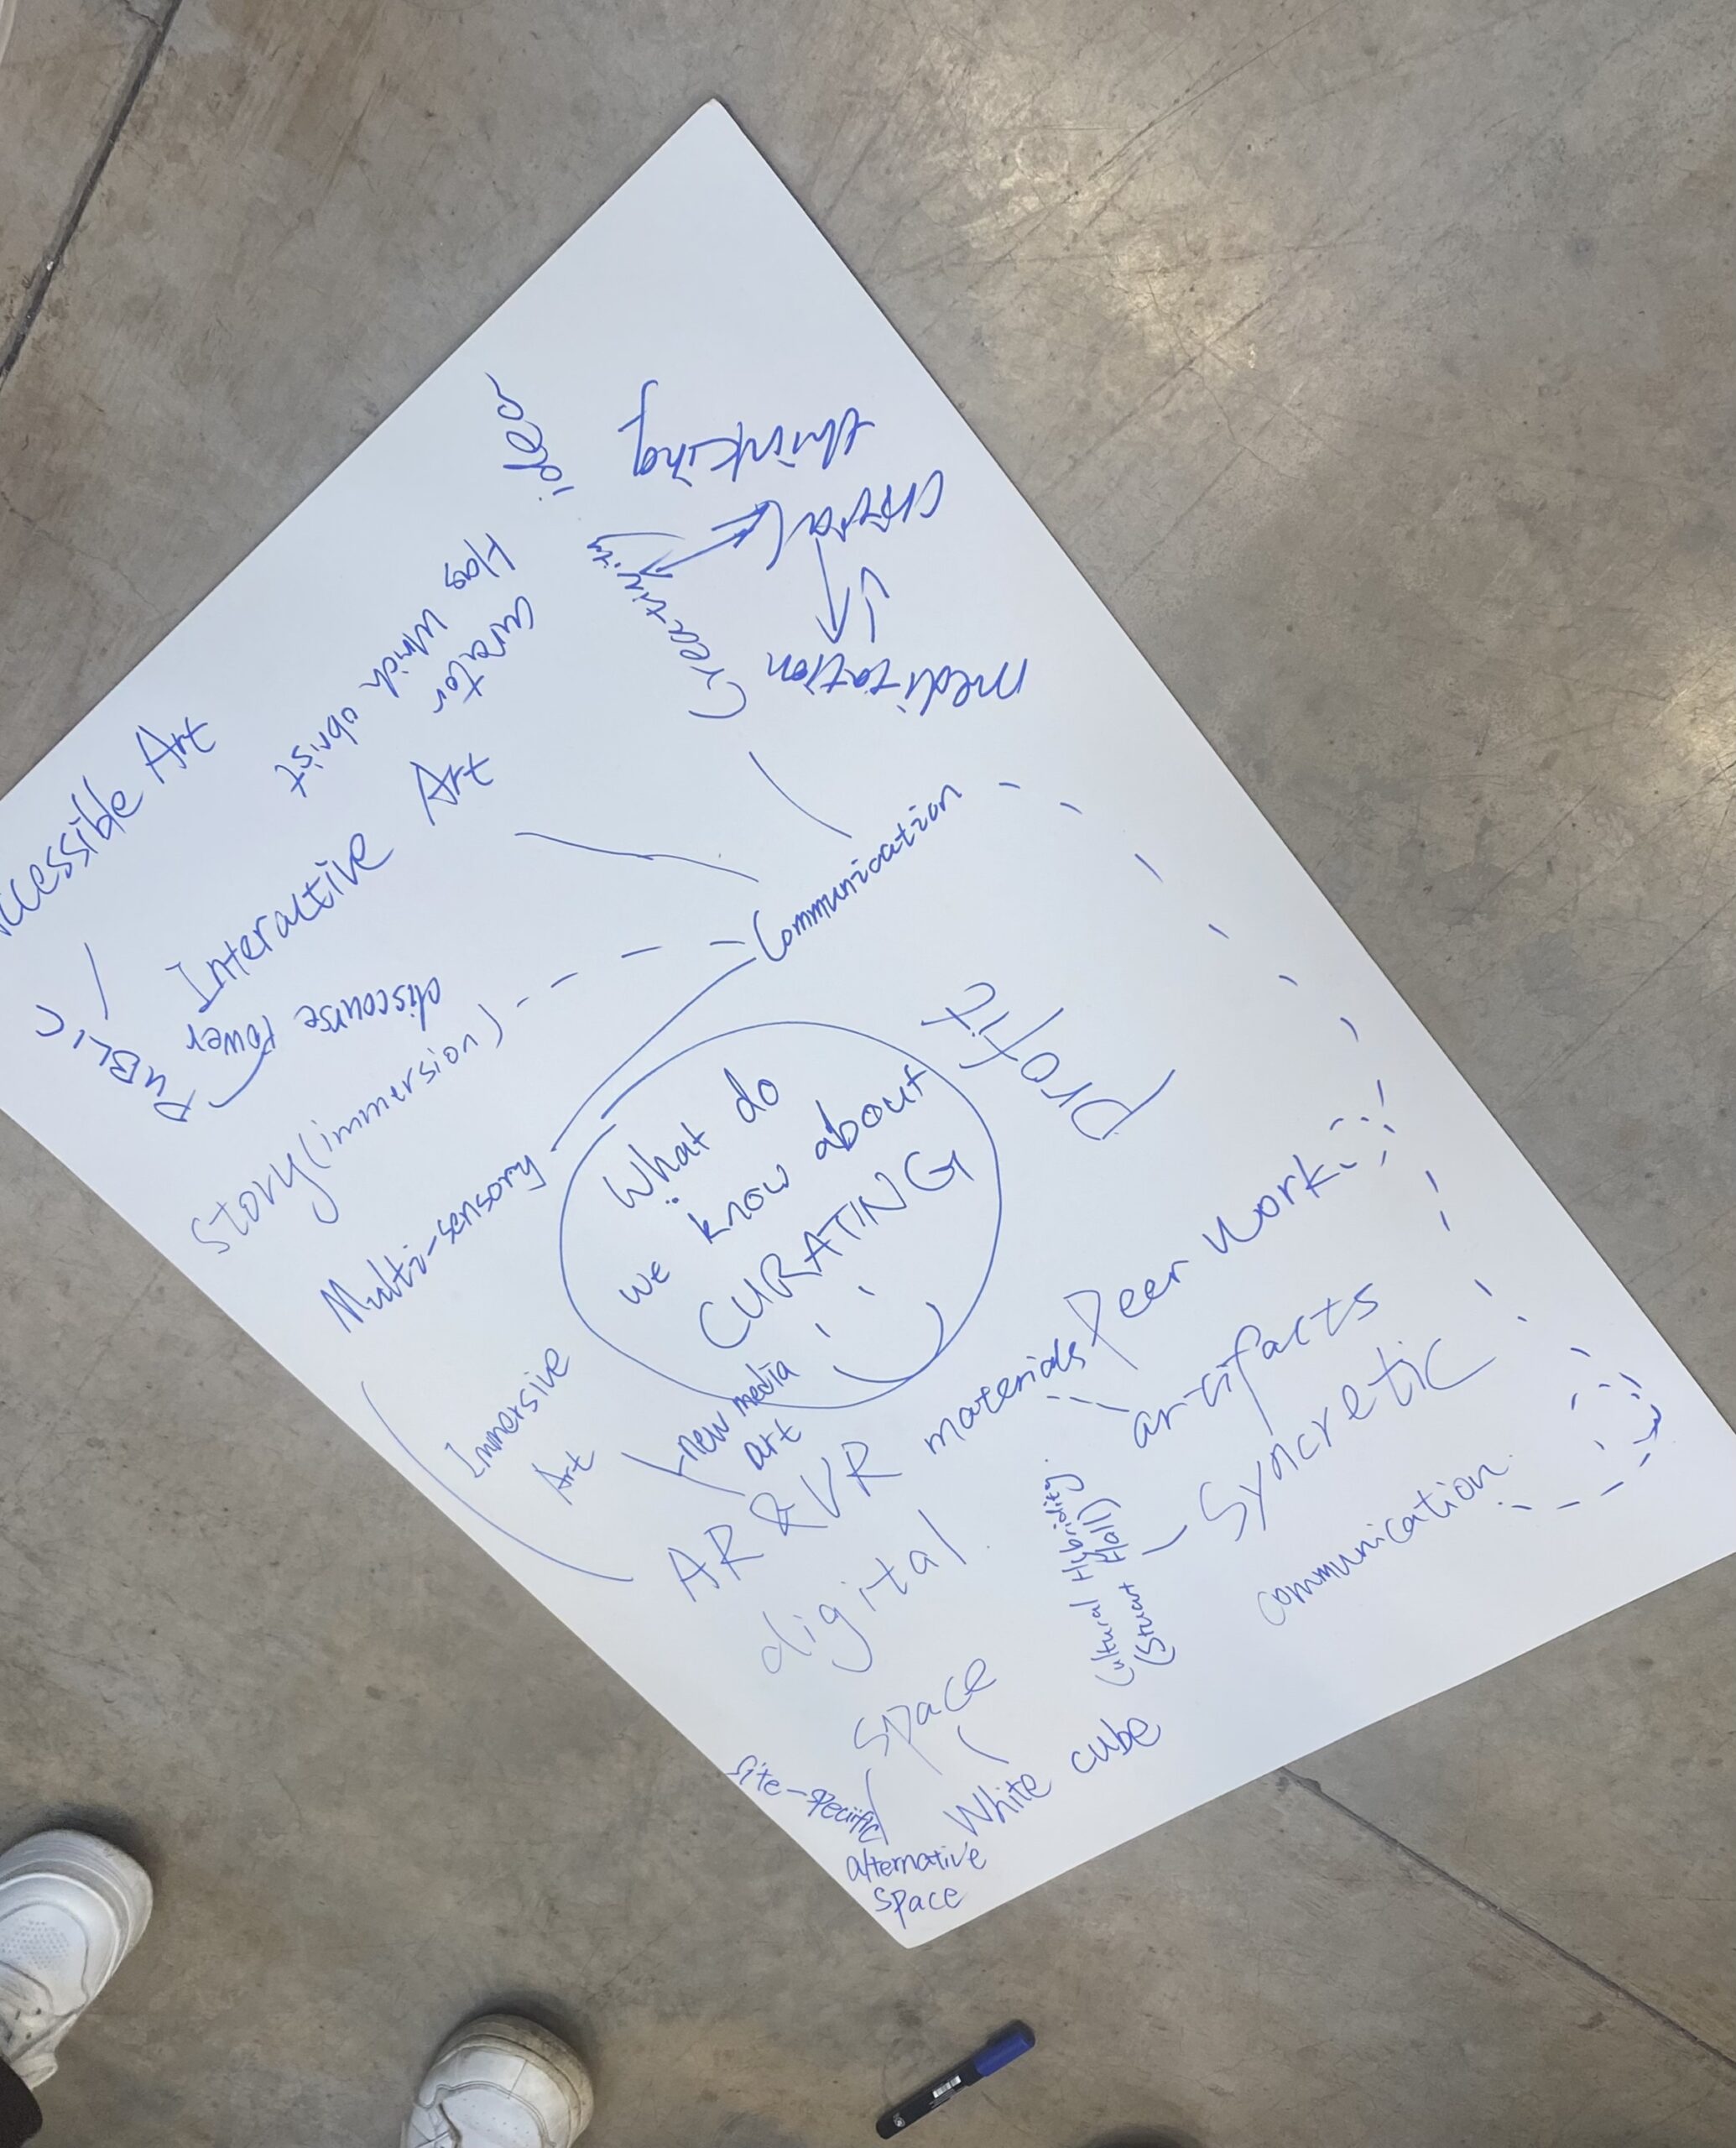 idea
thinking
critical
Creativity
meditation
Has which
curator
Accessible Art
Interactive Art
Communication
PUBLIC
discourse Power
story (immersion)
Multi-sensory
profit
What do
we know about
CURATING
Peer work
materials
artifacts
Immersive
Art
new media
art
AR & VR
Syncretic
Cultural Hybridity
(Stuart Hall)
communication
digital
space
White cube
site-specific
alternative
space